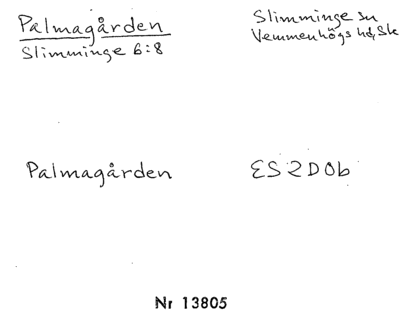 Palmagården
Slimminge 6:8
Slimminge sn
Vemmenhögs hd, Sk
Palmagården
ES 2 D 0b
Nr 13805